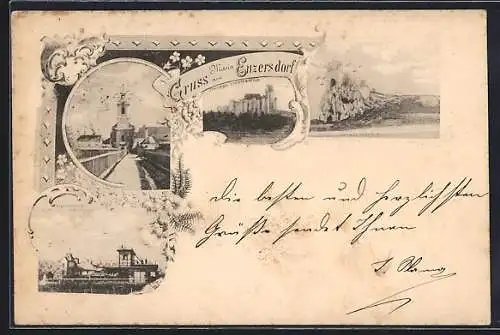 Gruss aus Maria Enzersdorf
Die besten und herzlichsten
Grüße sendet Ihnen